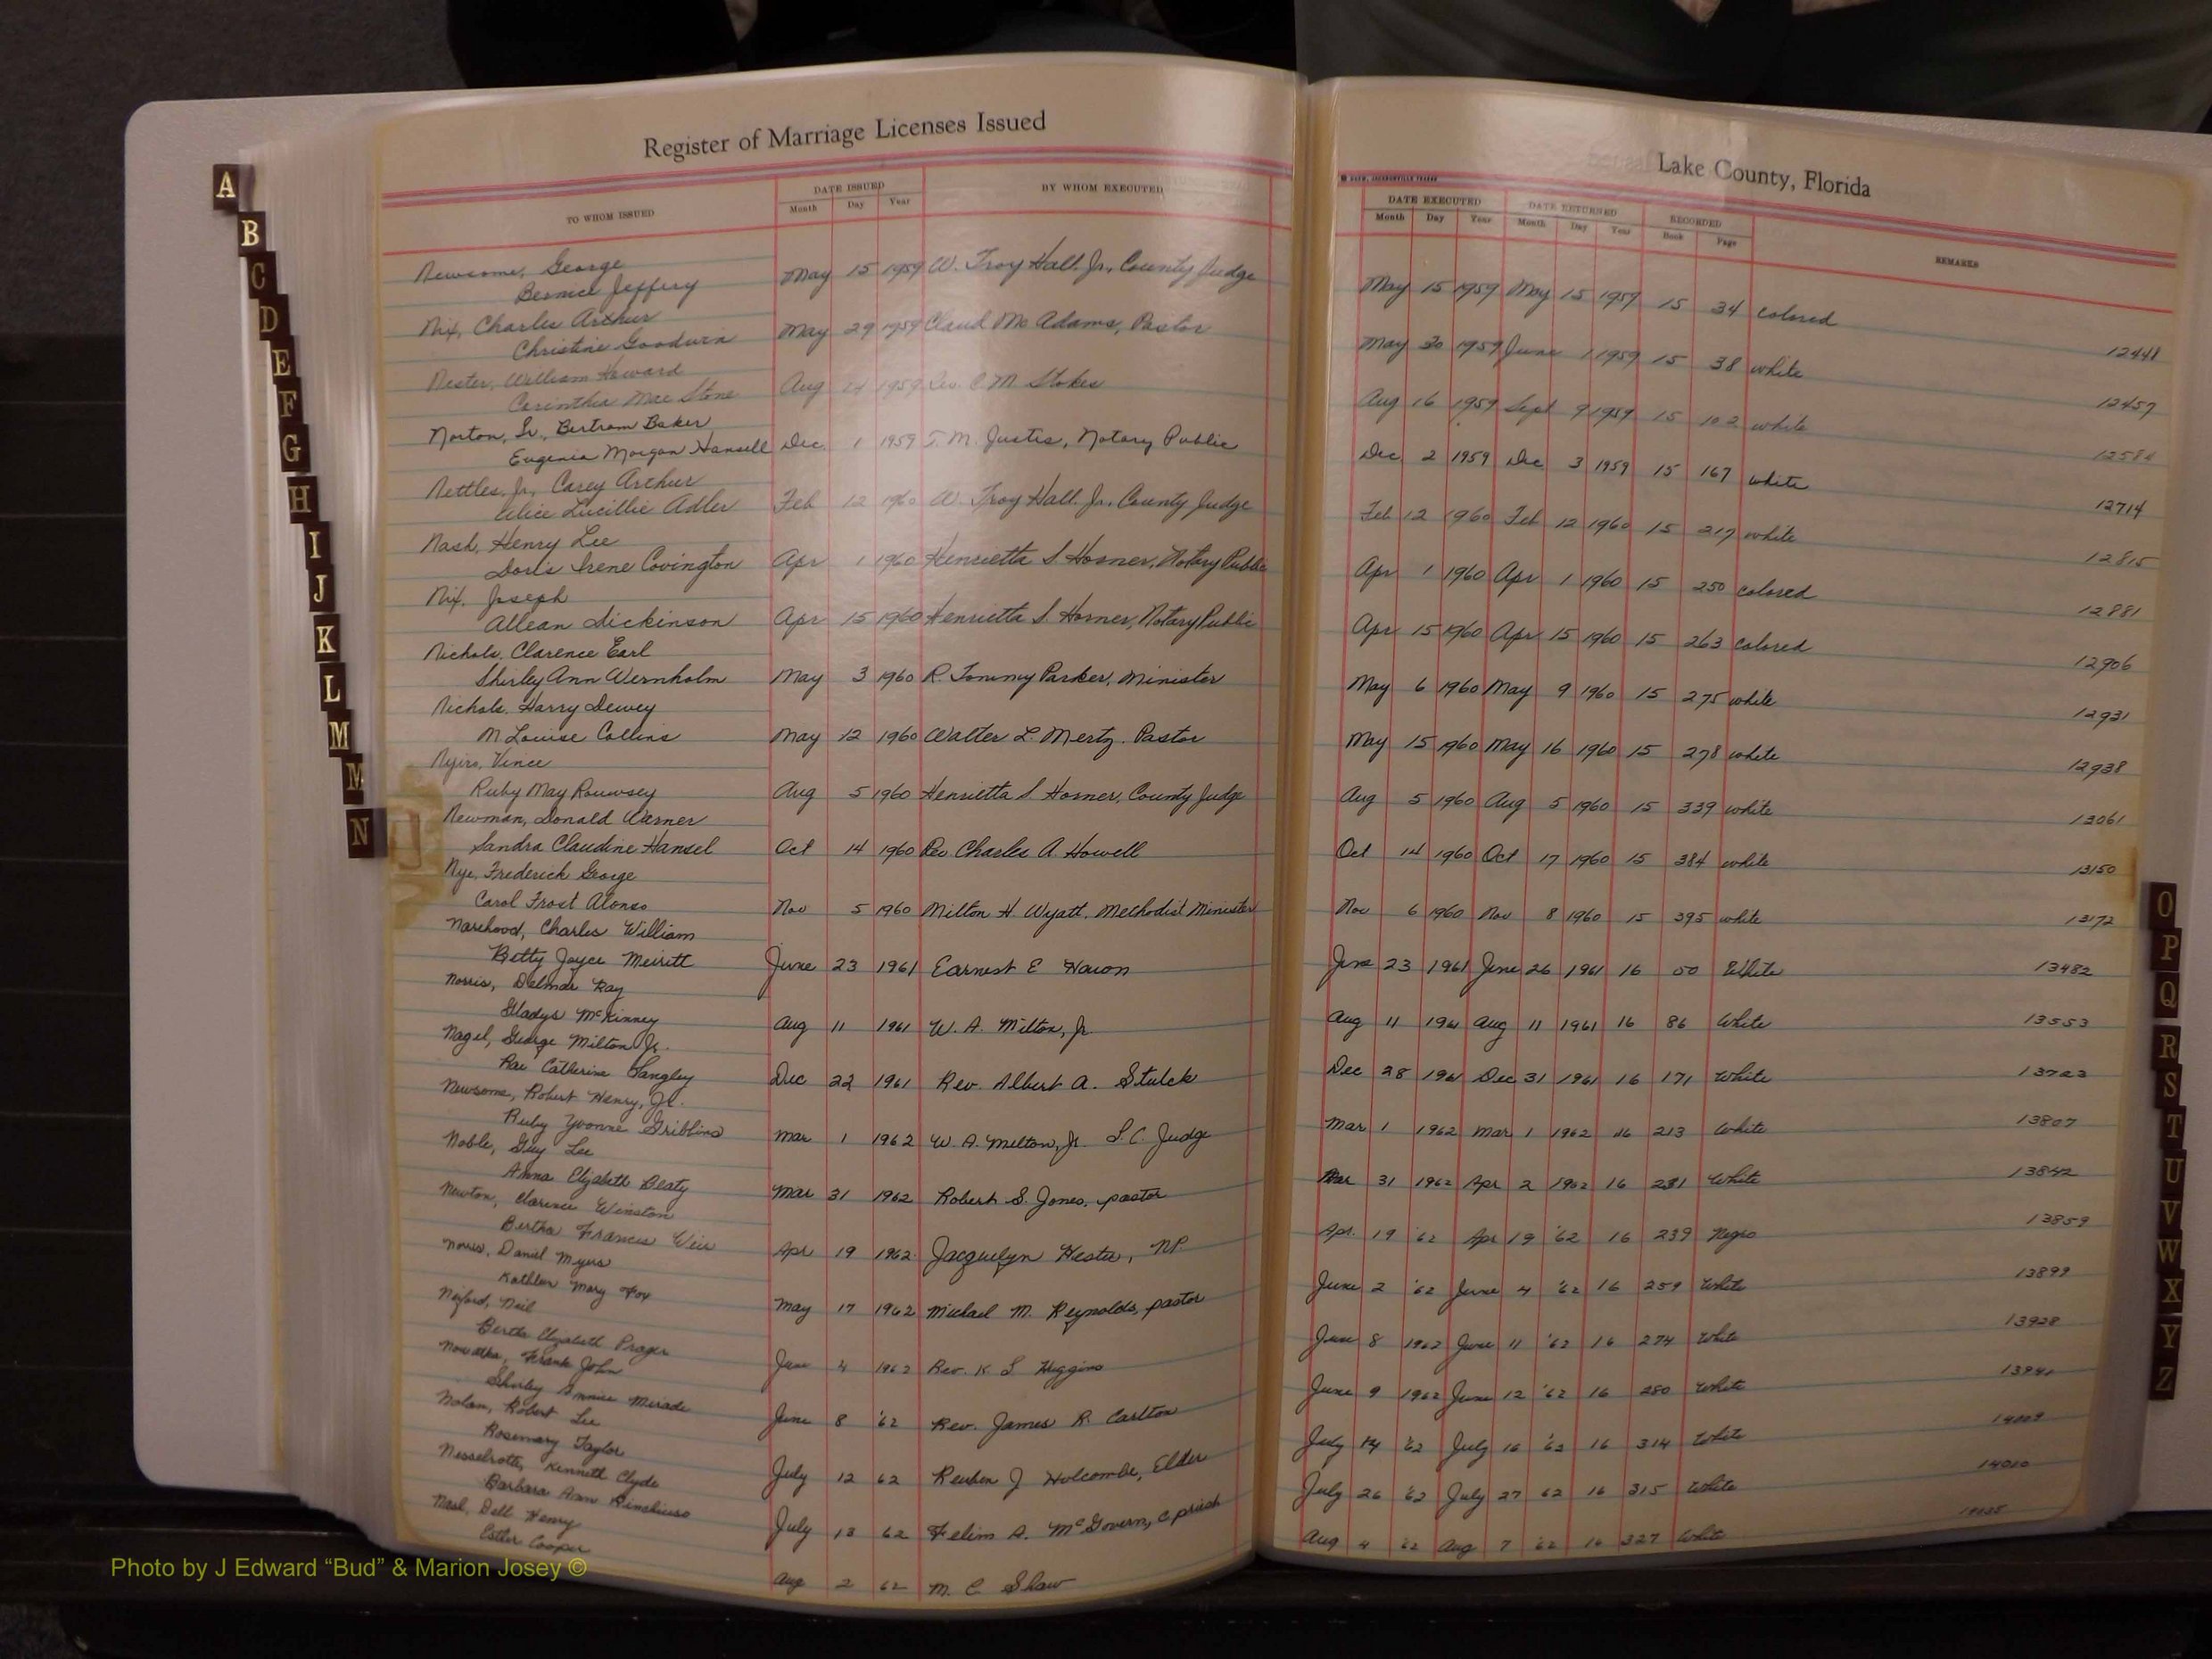 Register of Marriage Licenses Issued
Lake County, Florida
TO WHOM ISSUED
DATE ISSUED
Month Day Year
BY WHOM EXECUTED
DATE EXECUTED
Month Day Year
DATE RETURNED
Month Day Year
RECORDED
Book Page
REMARKS
Newsome, George
Bernice Jeffery
May 15 1959 W. Troy Hall, Jr., County Judge May 15 1959 May 15 1959 15 34 colored 12448
Nix, Charles Arthur
Christine Goodwin
May 29 1959 Claud Mc Adams, Pastor May 30 1959 June 1 1959 15 38 white 12457
Nester, William Howard
Corinthia Mae Stone
Aug 1959 Rev. C. M. Stokes Aug 16 1959 Sept 9 1959 15 102 white 12584
Norton, Sr., Bertram Baker
Eugenia Morgan Hansell
Dec 1 1959 T. M. Justis, Notary Public Dec 2 1959 Dec 3 1959 15 167 white 12714
Nettles, Jr., Carey Arthur
Alice Lucillie Adler
Feb 12 1960 W. Troy Hall, Jr., County Judge Feb 12 1960 Feb 12 1960 15 217 white 12815
Nash, Henry Lee
Doris Irene Covington
Apr 1 1960 Henrietta S. Horner, Notary Public Apr 1 1960 Apr 1 1960 15 250 colored 12881
Nix, Joseph
Allean Dickinson
Apr 15 1960 Henrietta S. Horner, Notary Public Apr 15 1960 Apr 15 1960 15 263 colored 12906
Nichols, Clarence Earl
Shirley Ann Wernholm
May 3 1960 R. Tommy Parker, Minister May 6 1960 May 9 1960 15 275 white 12931
Nichols, Harry Dewey
M. Louise Collins
May 12 1960 Walter L. Mertz, Pastor May 15 1960 May 16 1960 15 278 white 12938
Nyiro, Vince
Ruby May Rouwsey
Aug 5 1960 Henrietta S. Horner, County Judge Aug 5 1960 Aug 5 1960 15 339 white 13061
Newman, Donald Warner
Sandra Claudine Hansel
Oct 14 1960 Rev Charles A. Howell Oct 14 1960 Oct 17 1960 15 384 white 13150
Nye, Frederick George
Carol Frost Alonso
Nov 5 1960 Milton H. Wyatt, Methodist Minister Nov 6 1960 Nov 8 1960 15 395 white 13172
Narehood, Charles William
Betty Joyce Merritt
June 23 1961 Earnest E June 23 1961 June 26 1961 16 50 White 13482
Norris, Delmar Ray
Gladys McKinney
Aug 11 1961 W. A. Milton, Jr. Aug 11 1961 Aug 11 1961 16 86 White 13553
Nagel, George Milton Jr.
Rae Catherine Langley
Dec 22 1961 Rev. Albert A. Stulck Dec 28 1961 Dec 31 1961 16 171 White 13723
Newsome, Robert Henry, Jr.
Ruby Yvonne Gribbins
Mar 1 1962 W. A. Milton, Jr. Judge Mar 1 1962 Mar 1 1962 16 213 White 13807
Noble, Guy Lee
Anna Elizabeth Beaty
Mar 31 1962 Robert S. Jones, pastor Mar 31 1962 Apr 2 1962 16 231 White 13842
Newton, Clarence Winston
Bertha Francis Weir
Apr 19 1962 Jacquelyn Hester, NP. Apr. 19 '62 Apr 19 '62 16 239 Negro 13859
Norris, Daniel Myers
Kathleen Mary Fox
May 17 1962 Michael M. Reynolds, pastor June 2 '62 June 4 '62 16 259 White 13899
Nexford, Neil
Bertha Elizabeth Prager
June 4 1962 Rev. K. L Higgins June 8 1962 June 11 '62 16 274 White 13928
Nowatka, Frank John
Shirley Mirade
June 8 '62 Rev. James R. Carlton June 9 1962 June 12 '62 16 280 White
Nolan, Robert Lee
Rosemary Taylor
July 12 62 Reuben J Holcombe, Elder July 14 '62 July 16 '62 16 314 White 14009
Nesselrotte, Kenneth Clyde
Barbara Ann
July 13 62 Felim A. McGovern, C priest July 26 '62 July 27 62 16 315 White 14010
Nash, Dell Henry
Estler Cooper
Aug 2 62 M. C Shaw Aug 4 '62 Aug 7 '62 16 327 White
A
B
C
D
E
F
G
H
I
J
K
L
M
M
N
O
P
Q
R
S
T
U
V
W
X
Y
Z
Photo by J Edward “Bud” & Marion Josey ©